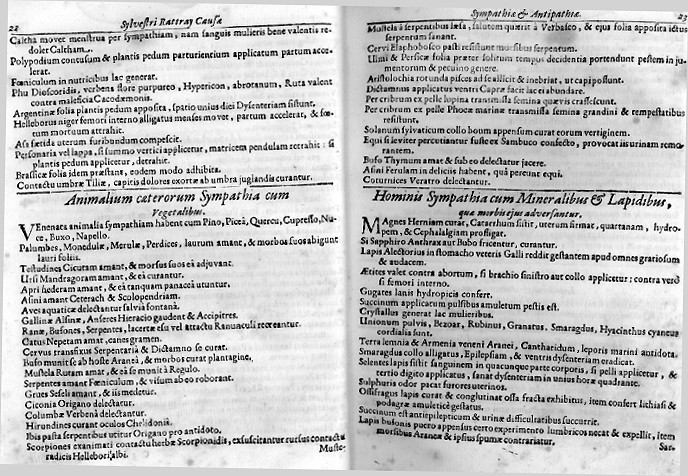 22 Sylvestri Rattray Causæ
Caltha movet menstrua per sympathiam, nam sanguis mulieris bene valentis re-
dolet Caltham.
Polypodium contusum & plantis pedum parturientium applicatum partum acce-
lerat.
Fœniculum in nutricibus lac generat.
Phu Dioscoridis, verbena flore purpureo, Hypericon, abrotanum, Ruta valent
contra maleficia Cacodæmonis.
Argentinæ folia plantis pedum apposita, spatio unius diei Dysenteriam sistunt.
Helleborus niger femori interno alligatus menses movet, partum accelerat, & fœ-
tum mortuum attrahit.
Assa fœtida uterum furibundum compescit.
Personaria vel lappa, si summo vertici applicetur, matricem pendulam retrahit: si
plantis pedum applicetur, detrahit.
Brassicæ folia idem præstant, eodem modo adhibita.
Contactu umbræ Tiliæ, capitis dolores exortæ ab umbra juglandis curantur.
Animalium cæterorum Sympathia cum
Vegetalibus.
VEnenata animalia sympathiam habent cum Pino, Picea, Quercu, Cupresso, Nu-
ce, Buxo, Napello.
Palumbes, Monedulæ, Merulæ, Perdices, laurum amant, & morbos suos abigunt
lauri foliis.
Testudines Cicutam amant, & morsus suos ea adjuvant.
Ursi Mandragoram amant, & ea curantur.
Apri hederam amant, & ea tanquam panacea utuntur.
Asini amant Ceterach & Scolopendriam.
Aves aquaticæ delectantur salvia fontana.
Gallinæ Alsina, Anseres Hieracio gaudent & Accipitres.
Ranæ, Bufones, Serpentes, lacertæ esu vel attactu Ranunculi recreantur.
Catus Nepetam amat, canes gramen.
Cervus transfixus Serpentaria & Dictamno se curat.
Bufo munit se ab hoste Aranea, & morbos curat plantagine.
Mustela Rutam amat, & ea se munit à Regulo.
Serpentes amant Fœniculum, & visum ab eo roborant.
Grues Seseli amant, & iis medetur.
Ciconia Origano delectatur.
Columbæ Verbenâ delectantur.
Hirundines curant oculos Chelidonia.
Ibis pasta serpentibus utitur Origano pro antidoto.
Scorpiones exanimati contactu herbæ Scorpionidis, exsuscitantur rursus contactu
radicis Hellebori albi. Muste-
Sympathiæ & Antipathiæ. 23
Mustela à serpentibus læsa, salutem quærit à Verbasco, & ejus folia apposita ictus
serpentum sanant.
Cervi Elaphobosco pasti resistunt morsibus serpentum.
Ulmi & Persicæ folia præter solitum tempus decidentia portendunt pestem in ju-
mentorum & pecuino genere.
Aristolochia rotunda pisces ad se allicit & inebriat, ut capi possunt.
Dictamnus applicatus ventri Capræ facit lac ei abundare.
Per cribrum ex pelle lupina transmissa semina quævis crassescunt.
Per cribrum ex pelle Phocæ marinæ transmissa semina grandini & tempestatibus
resistunt.
Solanum sylvaticum collo boum appensum curat eorum vertiginem.
Equi si leviter percutiantur fuste ex Sambuco confecto, provocat iis urinam remo-
rantem.
Bufo Thymum amat & sub eo delectatur jacere.
Asini Ferulam in deliciis habent, quâ pereunt equi.
Coturnices Veratro delectantur.
Hominis Sympathia cum Mineralibus & Lapidibus,
quæ morbis ejus adversantur.
MAgnes Herniam curat, Catarrhum sistit, uterum firmat, quartanam, hydro-
pem, & Cephalalgiam profligat.
Si Sapphiro Anthrax aut Bubo fricentur, curantur.
Lapis Alectorius in stomacho veteris Galli reddit gestantem apud omnes gratiosum
& audacem.
Ætites valet contra abortum, si brachio sinistro aut collo applicetur: contra verò
si femori interno.
Gagates lapis hydropicis confert.
Succinum applicatum pulsibus amuletum pestis est.
Crystallus generat lac mulieribus.
Unionum pulvis, Bezoar, Rubinus, Granatus, Smaragdus, Hyacinthus cyaneus
cordialia sunt.
Terra lemnia & Armenia veneni Aranei, Cantharidum, leporis marini antidota.
Smaragdus collo alligatus, Epilepsiam, & ventris dysenteriam eradicat.
Selenites lapis sistit sanguinem in quacunque parte corporis, si pelli applicetur, &
tertio digito applicatus, sanat dysenteriam in unius horæ quadrante.
Sulphuris odor pacat furores uterinos.
Ossifragus lapis curat & conglutinat ossa fracta exhibitus, item confert lithiasi &
podagræ amuleticè gestatus.
Succinum est antiepilepticum & urinæ difficultatibus succurrit.
Lapis bufonis puero appensus certo experimento lumbricos necat & expellit, item
morsibus Araneæ & ipsius spumæ contrariatur. Sar-